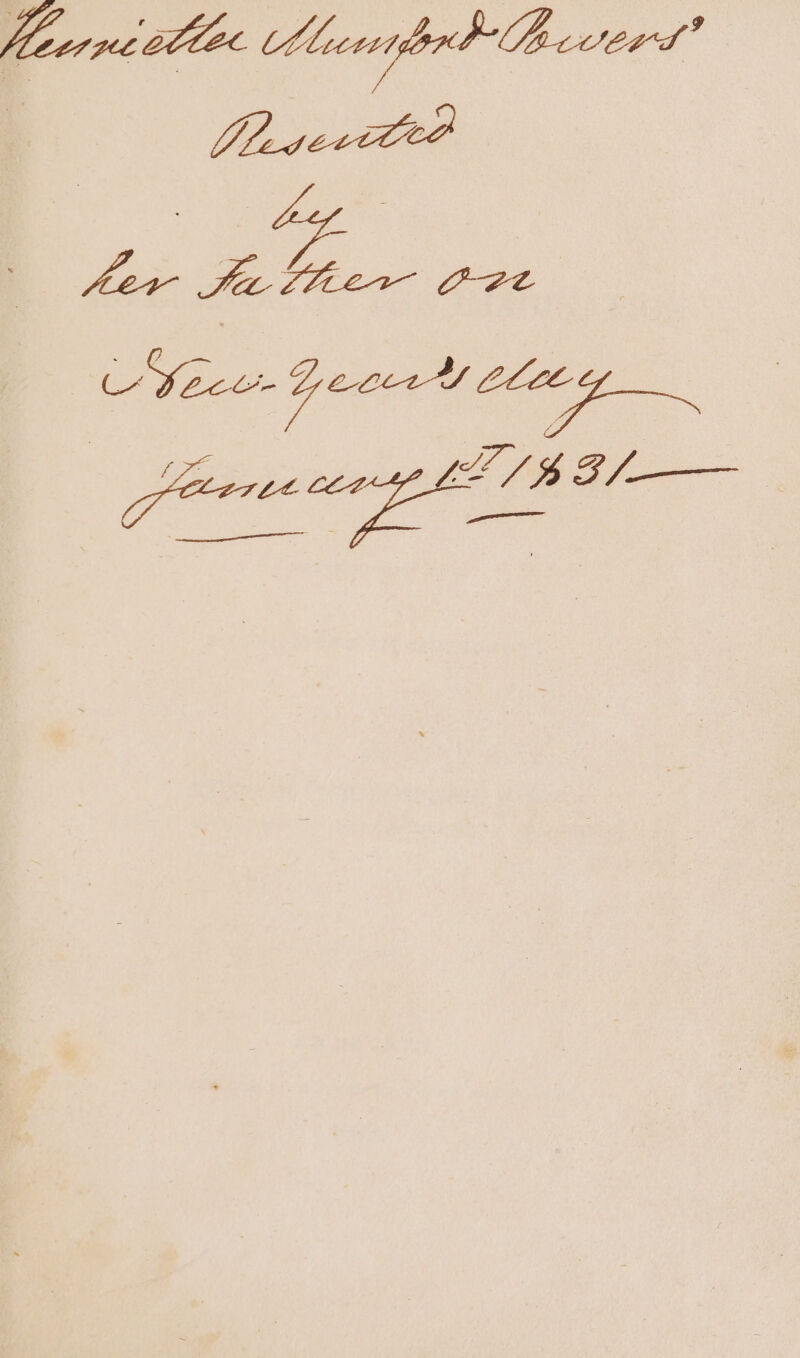 Henrietta Mumford Powers'
Presented
by
her Father on
New-Year's day
January 1st 1831